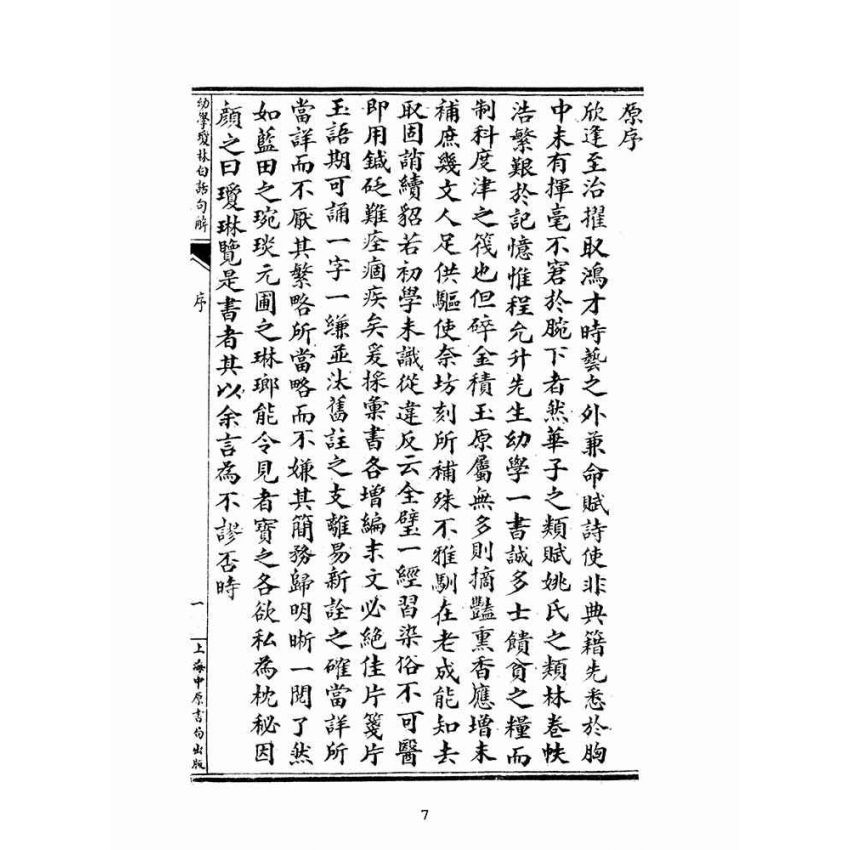 原序
欣逢至治擢取鴻才時藝之外兼命賦詩使非典籍先悉於胸
中未有揮毫不窘於腕下者然華子之類賦姚氏之類林卷帙
浩繁艱於記憶惟程允升先生幼學一書誠多士饋貧之糧而
制科度津之筏也但碎金積玉原屬無多則摘豔熏香應增未
補庶幾文人足供驅使奈坊刻所補殊不雅馴在老成能知去
取固誚續貂若初學未識從違反云全璧一經習染俗不可醫
即用鍼砭難痊痼疾矣爰採彙書各增編末文必絕佳片箋片
玉語期可誦一字一縑並汰舊註之支離易新詮之確當詳所
當詳而不厭其繁略所當略而不嫌其簡務歸明晰一閱了然
如藍田之琬琰元圃之琳瑯能令見者寶之各欲私為枕秘因
顏之曰瓊琳覽是書者其以余言為不謬否時
幼學瓊林白話句解
序
一
上海中原書局出版
7